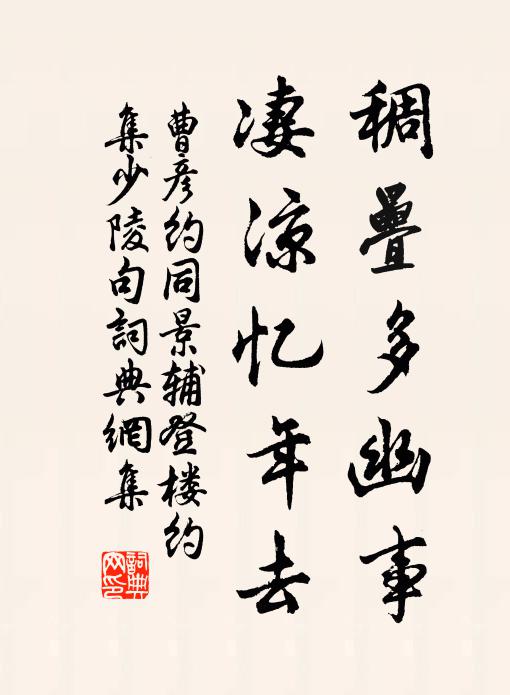 稠疊多幽事
凄涼忆年去
曹彦约同景辅登楼约
集少陵句詞典網集
詞典网印